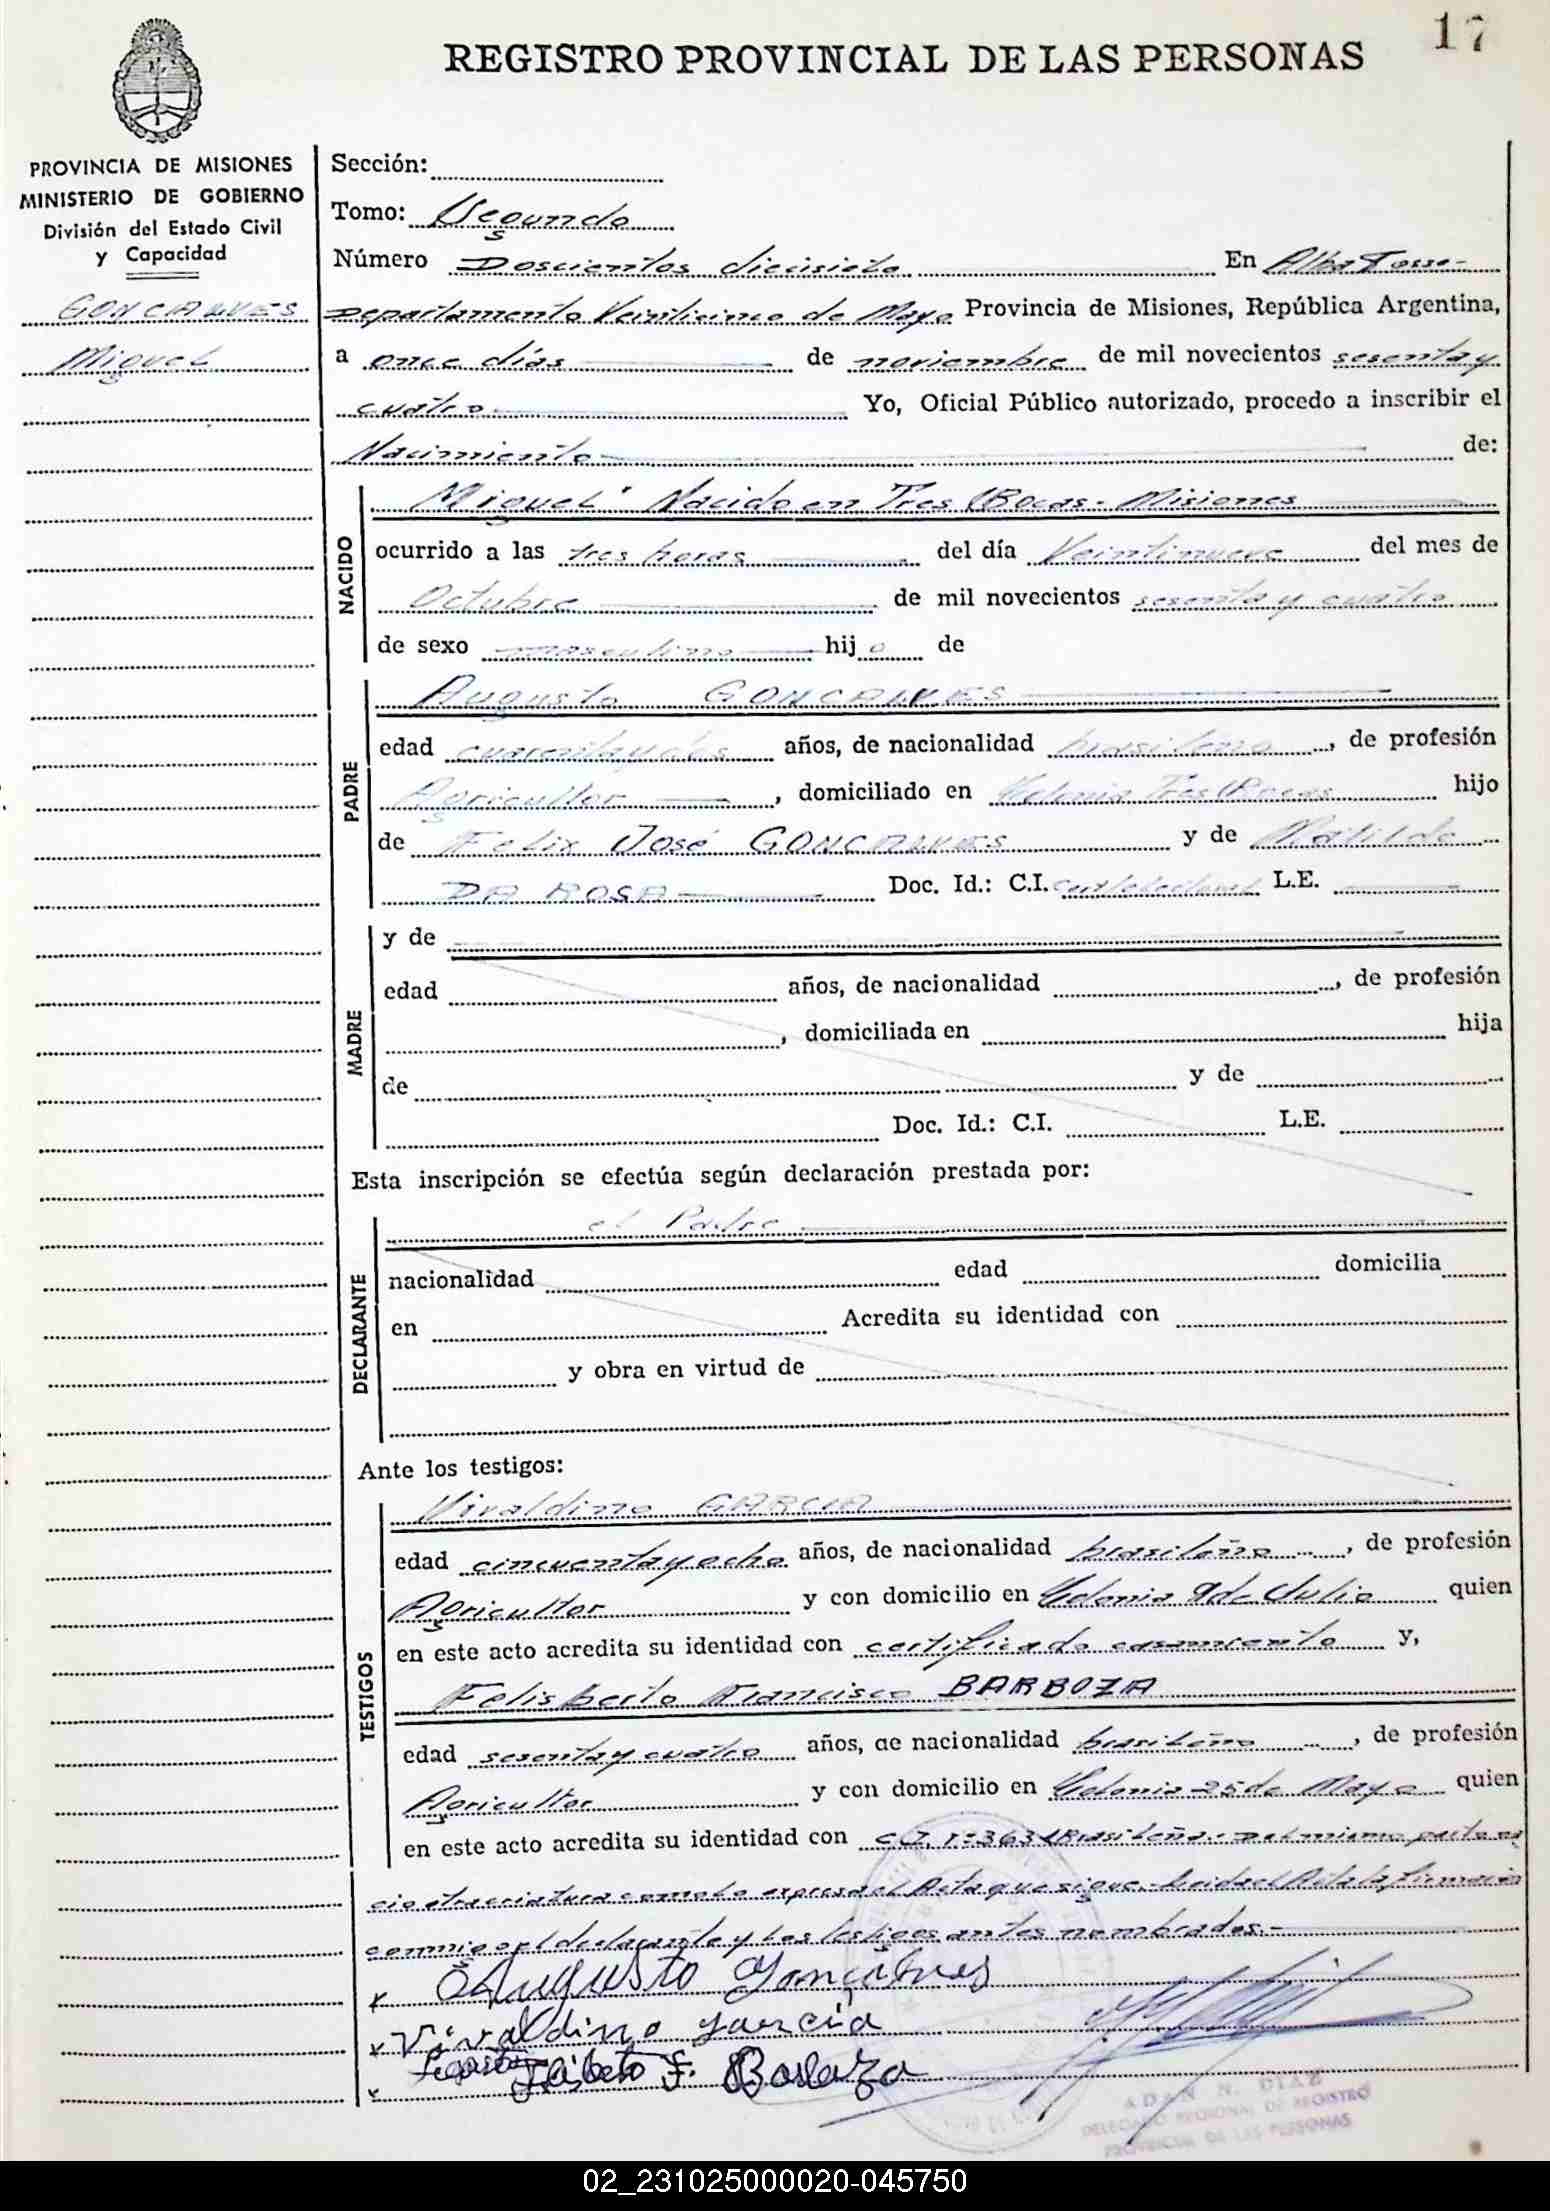 17
REGISTRO PROVINCIAL DE LAS PERSONAS
PROVINCIA DE MISIONES
MINISTERIO DE GOBIERNO
División del Estado Civil
y Capacidad
GONCALVES
Miguel
Sección:
Tomo: Segundo
Número Doscientos diecisiete En Alba Posse-
Departamento Veinticinco de Mayo Provincia de Misiones, República Argentina,
a once días de noviembre de mil novecientos sesenta y
cuatro Yo, Oficial Público autorizado, procedo a inscribir el
Nacimiento de:
NACIDO
Miguel" Nacido en Tres Bocas - Misiones
ocurrido a las tres horas del día Veintinueve del mes de
Octubre de mil novecientos sesenta y cuatro
de sexo masculino hijo de
PADRE
Augusto GONCALVES
edad cuarenta y dos años, de nacionalidad brasileño, de profesión
Agricultor, domiciliado en Colonia Tres Bocas hijo
de Felix José GONCALVES y de Matilde
DA ROSA Doc. Id.: C.I. L.E.
MADRE
y de
edad años, de nacionalidad, de profesión
, domiciliada en hija
de y de
Doc. Id.: C.I. L.E.
Esta inscripción se efectúa según declaración prestada por:
DECLARANTE
el Padre
nacionalidad edad domicilia
en Acredita su identidad con
y obra en virtud de
Ante los testigos:
TESTIGOS
Vivaldino GARCIA
edad cincuenta y ocho años, de nacionalidad brasileño, de profesión
Agricultor y con domicilio en Colonia 9 de Julio quien
en este acto acredita su identidad con certificado casamiento y,
Felisberto Francisco BARBOZA
edad sesenta y cuatro años, de nacionalidad brasileño, de profesión
Agricultor y con domicilio en Colonia 25 de Mayo quien
en este acto acredita su identidad con C.I. Nº 3631 Brasileña.- Del mismo parto na
cio otra criatura como lo expresa el Acta que sigue.- Leida el Acta la firman
conmigo el declarante y los testigos antes nombrados.-
x Augusto Gonçalves
x Vivaldino Garcia
x Felisberto F. Barboza
ADAN N. DIAZ
DELEGADO REGIONAL DE REGISTRO
PROVINCIAL DE LAS PERSONAS
02_231025000020-045750